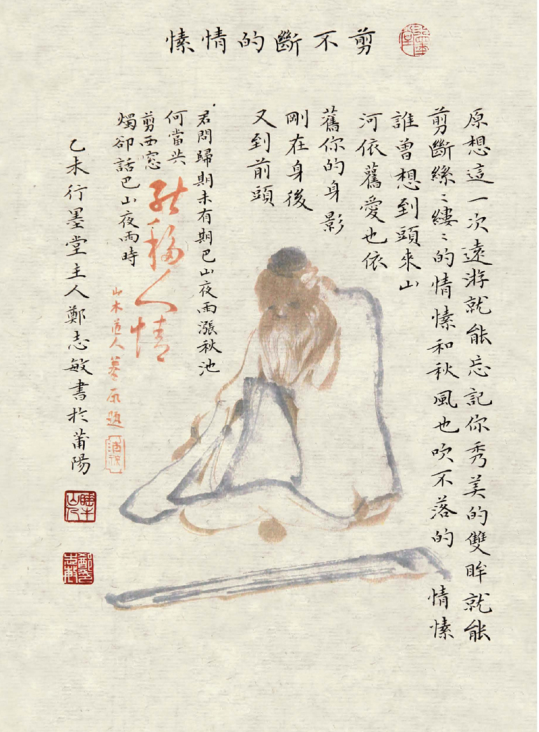 剪不斷的情愫
原想這一次遠游就能忘記你秀美的雙眸就能
剪斷絲〻縷〻的情愫和秋風也吹不落的情愫
誰曾想到頭來山
河依舊愛也依
舊你的身影
剛在身後
又到前頭
君問歸期未有期巴山夜雨漲秋池
何當共
剪西窓
燭卻話巴山夜雨時
能移人情
山木道人摹原題
乙未行墨堂主人鄭志敏書於莆陽